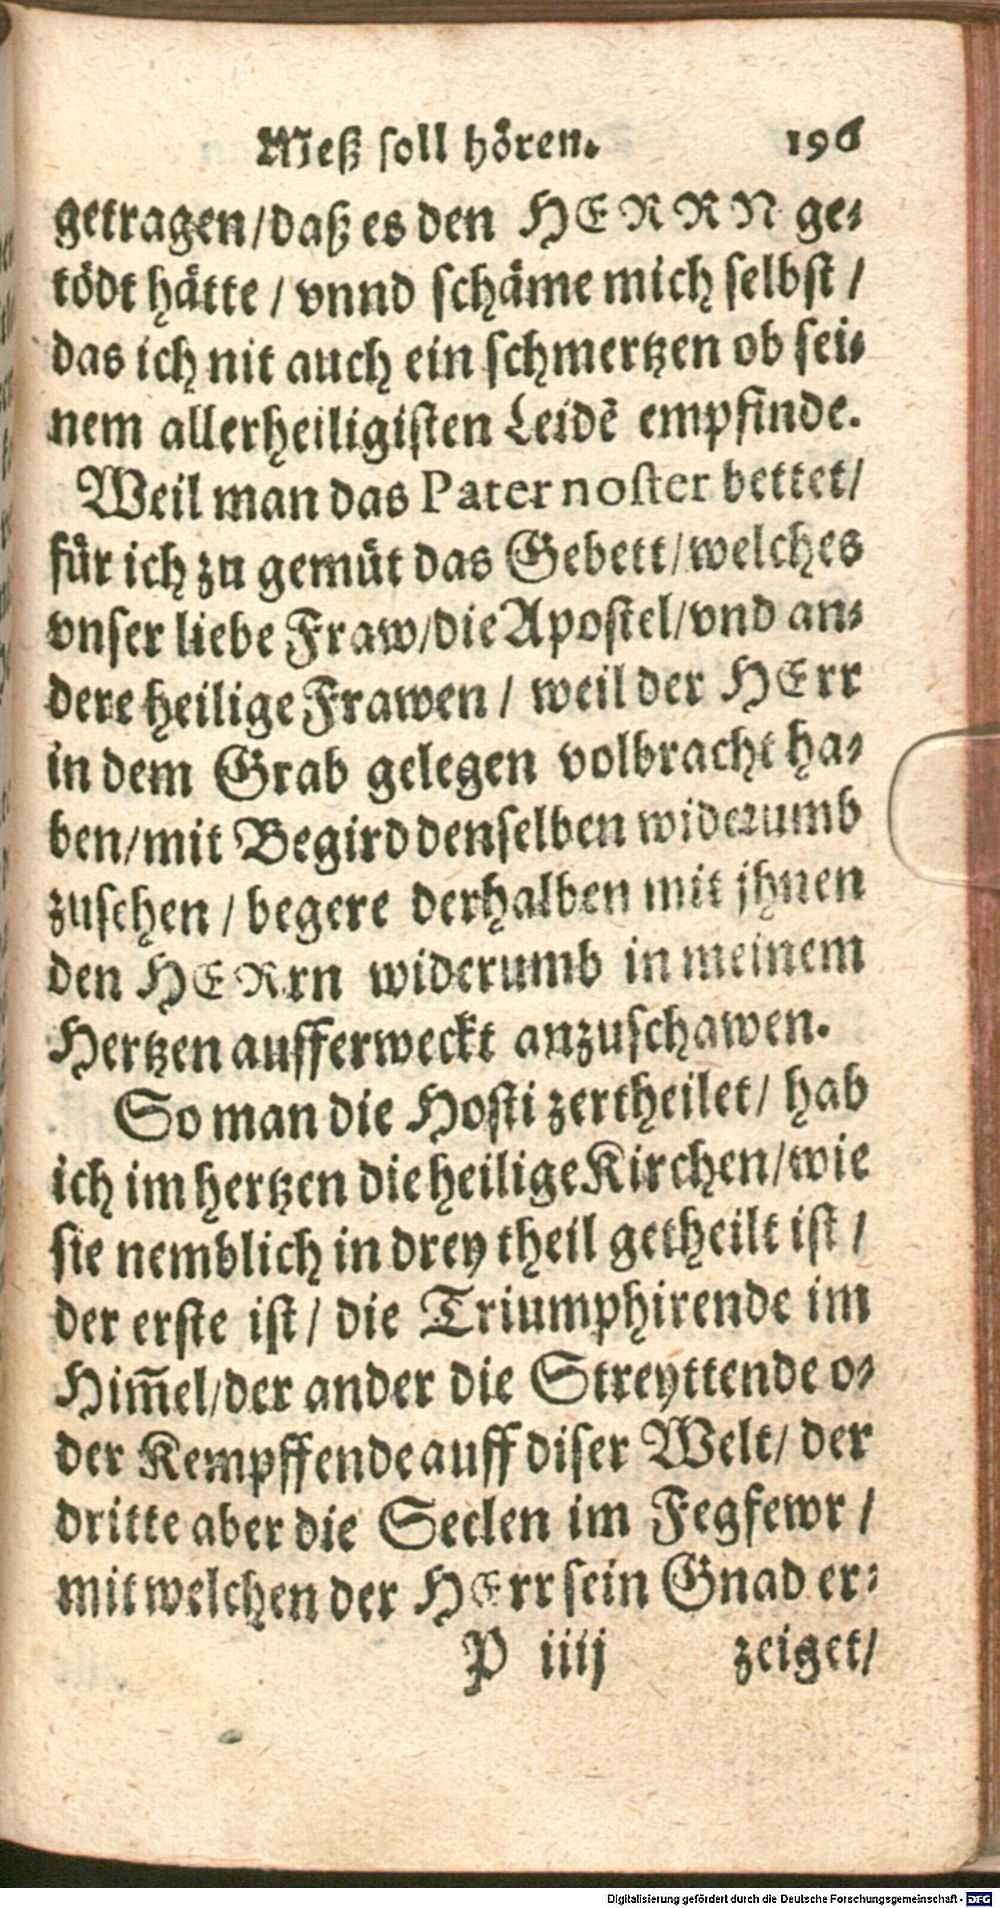 Meß soll hören. 196
getragen/daß es den HERRN ge-
tödt hätte / vnnd schäme mich selbst /
das ich nit auch ein schmertzen ob sei-
nem allerheiligisten Leidẽ empfinde.
Weil man das Pater noster bettet/
für ich zu gemüt das Gebett/welches
vnser liebe Fraw/die Apostel/vnd an-
dere heilige Frawen / weil der HErr
in dem Grab gelegen volbracht ha-
ben/mit Begird denselben widerumb
zusehen / begere derhalben mit jhnen
den HERrn widerumb in meinem
Hertzen aufferweckt anzuschawen.
So man die Hosti zertheilet/ hab
ich im hertzen die heilige Kirchen/wie
sie nemblich in drey theil getheilt ist /
der erste ist/ die Triumphirende im
Him̃el/der ander die Streyttende o-
der Kempffende auff diser Welt/ der
dritte aber die Seelen im Fegfewr /
mit welchen der HErr sein Gnad er-
P iiij zeiget/
Digitalisierung gefördert durch die Deutsche Forschungsgemeinschaft - DFG